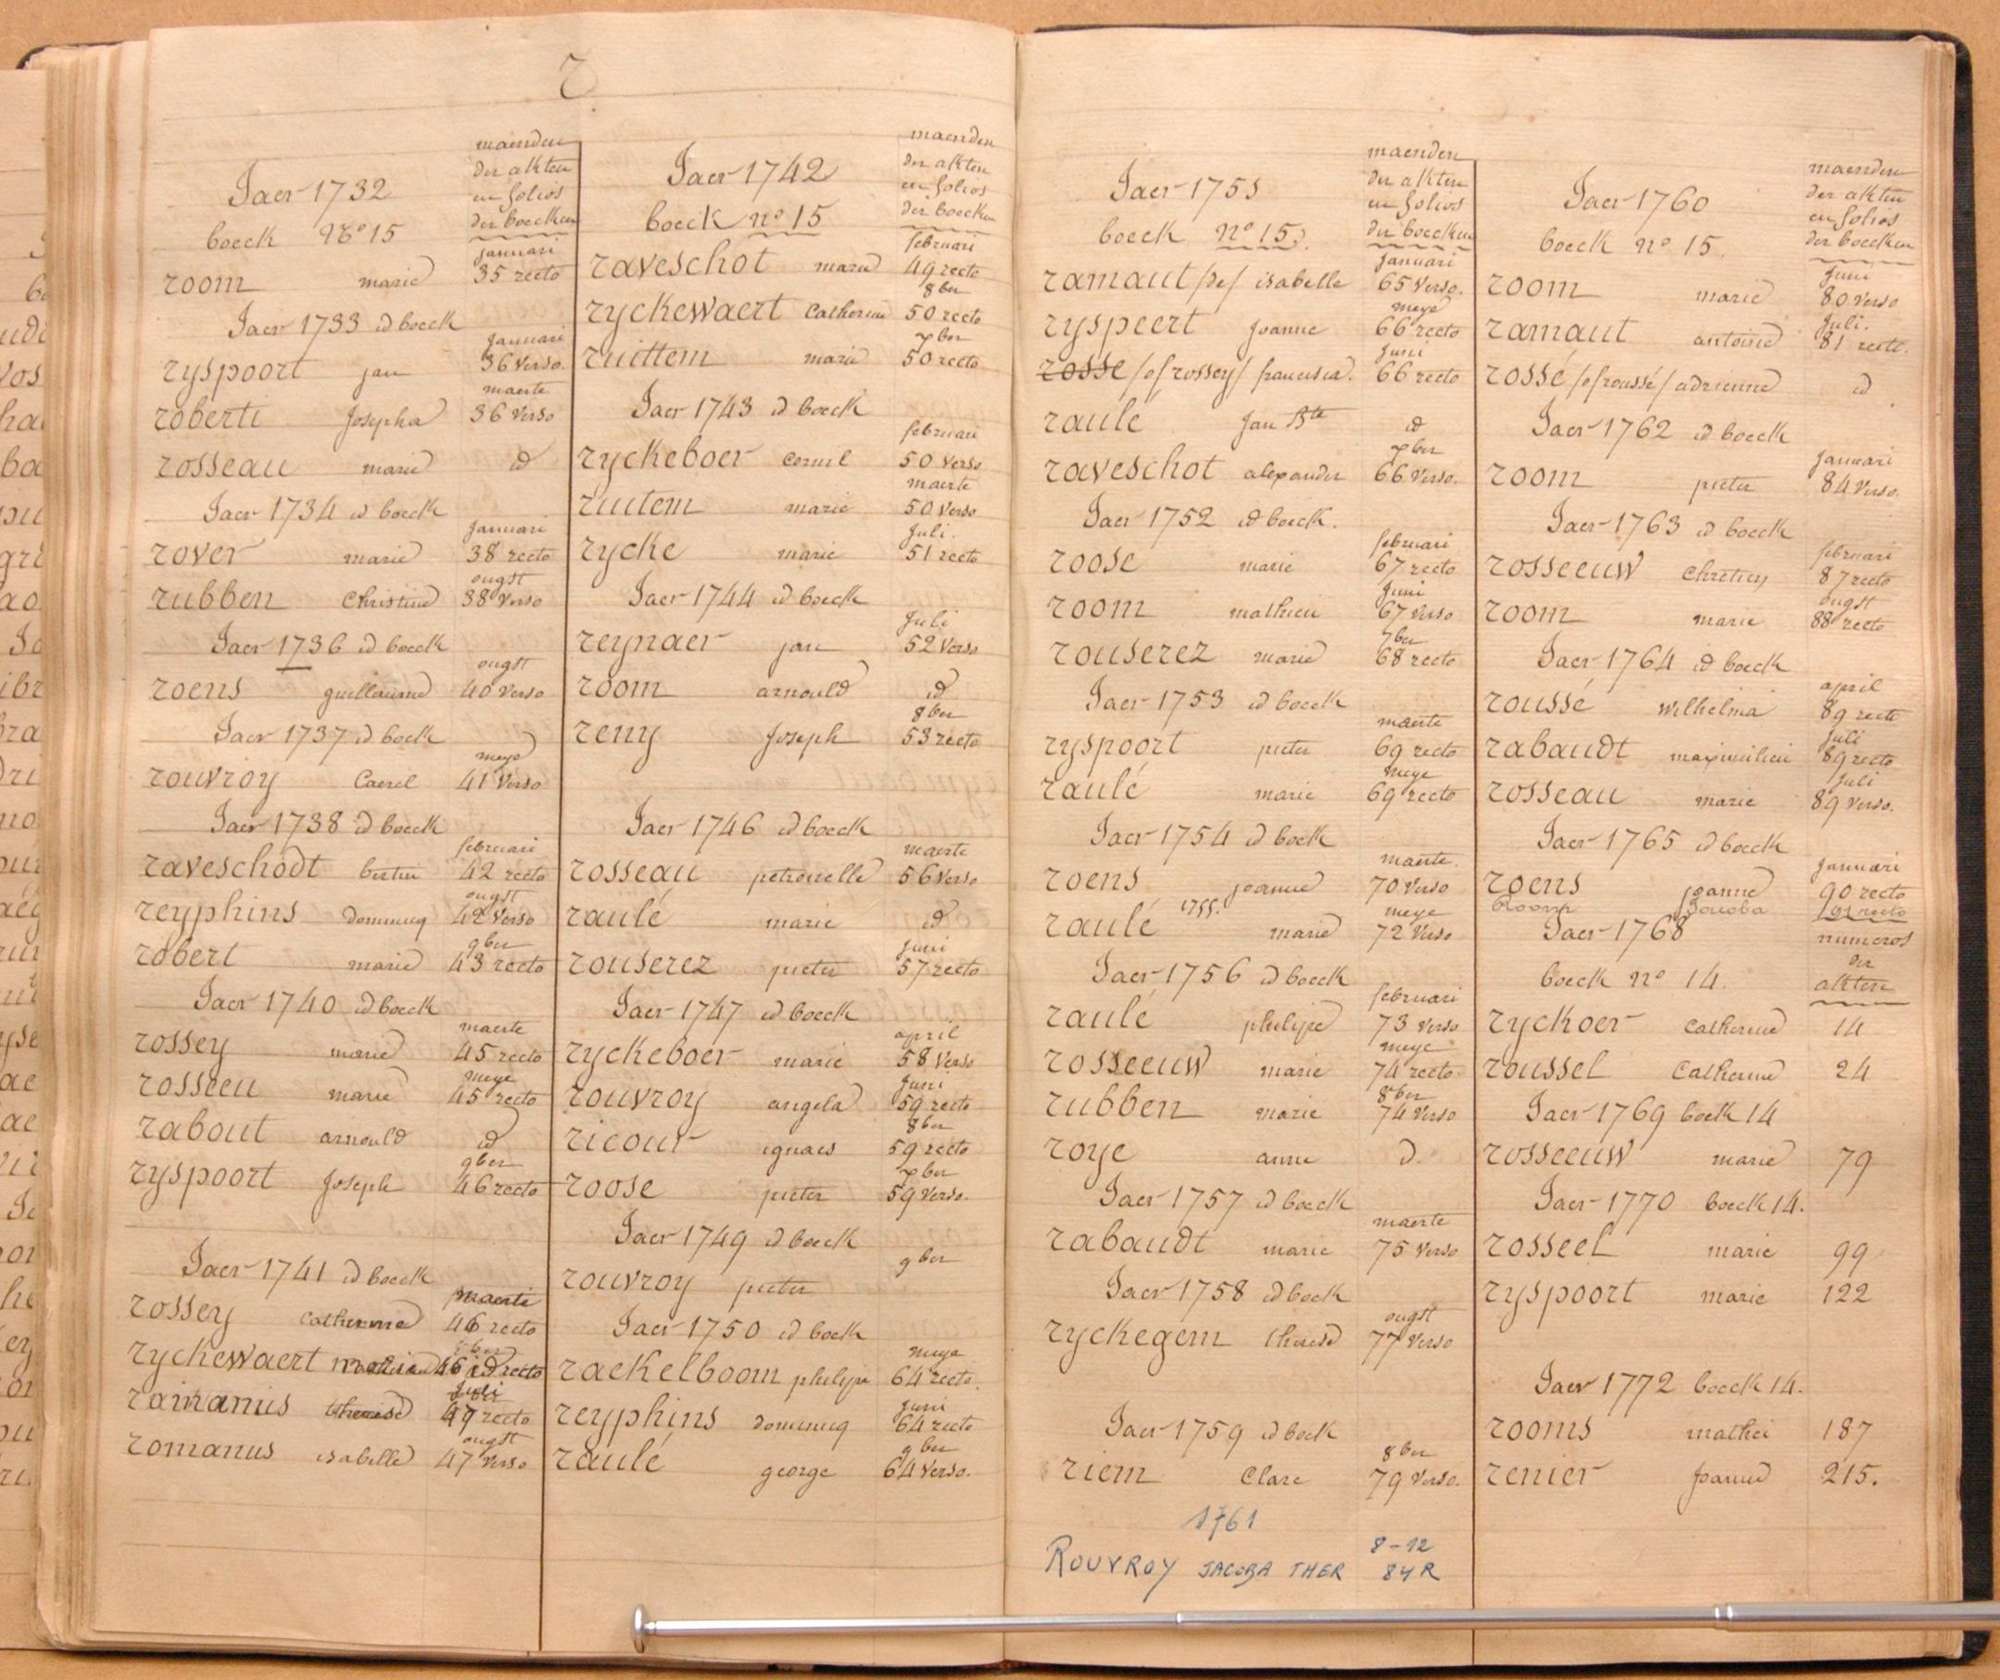 r
maenden
der akten
en folios
der boecken
Jaer 1732
boeck No 15
januari
room marie 35 recto
Jaer 1733 id boeck
januari
ryspoort jan 36 verso.
maerte
roberti Josepha 36 verso
rosseau marie id
Jaer 1734 id boeck
januari
rover marie 38 recto
ougst
rubben Christine 38 verso
Jaer 1736 id boeck
ougst
roens guillaume 40 verso
Jaer 1737 id boek
meye
rouvroy Caerel 41 verso
Jaer 1738 id boeck
februari
raveschodt bertin 42 recto
ougst
reyphins dominicq 42 verso
9ber
robert marie 43 recto
Jaer 1740 id boeck
maerte
rossey marie 45 recto
meye
rosseeu marie 45 recto
rabout arnould id
9ber
ryspoort Joseph 46 recto
Jaer 1741 id boeck
maerte
rossey catherine 46 recto
ryckewaert 46 recto
Juli
therese 47 recto
ougst
romanus isabelle 47 verso
maenden
der akten
en folios
der boecken
Jaer 1742
boeck no 15
februari
raveschot marie 49 recto
8ber
ryckewaert Catherine 50 recto
xber
ruittem marie 50 recto
Jaer 1743 id boeck
februari
ryckeboer Corneel 50 verso
maerte
ruitem marie 50 verso
Juli.
rycke marie 51 recto
Jaer 1744 id boeck
Juli
reynaer jan 52 verso
room arnould id
8ber
remy Joseph 53 recto
Jaer 1746 id boeck
maerte
rosseau petronelle 56 verso
raulé marie id
juni
rouserez pieter 57 recto
Jaer 1747 id boeck
april
ryckeboer marie 58 verso
Juni
rouvroy angela 59 recto
8ber
ricour ignaes 59 recto
xber
roose pieter 59 verso.
Jaer 1749 id boeck
9ber
rouvroy pieter
Jaer 1750 id boek
meye
raekelboom philipe 64 recto.
juni
reyphins dominicq 64 recto
9ber
raulé george 64 verso.
maenden
der akten
en folios
der boecken
Jaer 1751
boeck no 15.
januari
ramaut /de/ isabelle 65 verso.
meye
ryspeert Joanne 66 recto
juni
rosse /of rossey/ francisca. 66 recto
raulé Jan Bte id
xber
raveschot alexander 66 verso.
Jaer 1752 id boeck.
februari
roose marie 67 recto
Juni
room mathieu 67 verso
7ber
rouserez marie 68 recto
Jaer 1753 id boeck
maerte
ryspoort pieter 69 recto
meye
raulé marie 69 recto
Jaer 1754 id boek
maerte.
roens joanne 70 verso
1755. meye
raulé marie 72 verso
Jaer 1756 id boeck
februari
raulé philipe 73 verso
meye
rosseeuw marie 74 recto
8ber
rubben marie 74 verso
roye anne d.
Jaer 1757 id boeck
maerte
rabaudt marie 75 verso
Jaer 1758 id boek
ougst
ryckegem therese 77 verso
Jaer 1759 id boek
8ber
riem Clare 79 verso.
1761
8-12
ROUVROY JACOBA THER 84R
maenden
der akten
en folios
der boecken
Jaer 1760
boeck no 15.
Juni
room marie 80 verso
Juli.
ramaut antoine 81 recto.
rossé /of roussé/ adrienne id
Jaer 1762 id boeck
januari
room pieter 84 verso.
Jaer 1763 id boeck
februari
rosseeuw Chretien 87 recto
ougst
room marie 88 recto
Jaer 1764 id boeck
april
roussé Wilhelmia 89 recto
Juli
rabaudt maximilien 89 recto
Juli
rosseau marie 89 verso.
Jaer 1765 id boeck
januari
roens joanne 90 recto
Room Jacoba 91 recto
Jaer 1768
boeck no 14.
numeros
der
akten
ryckoer Catherine 14
roussel Catherine 24
Jaer 1769 boek 14
rosseeuw marie 79
Jaer 1770 boeck 14.
rosseel marie 99
ryspoort marie 122
Jaer 1772 boeck 14.
rooms mathei 187
renier Joanne 215.